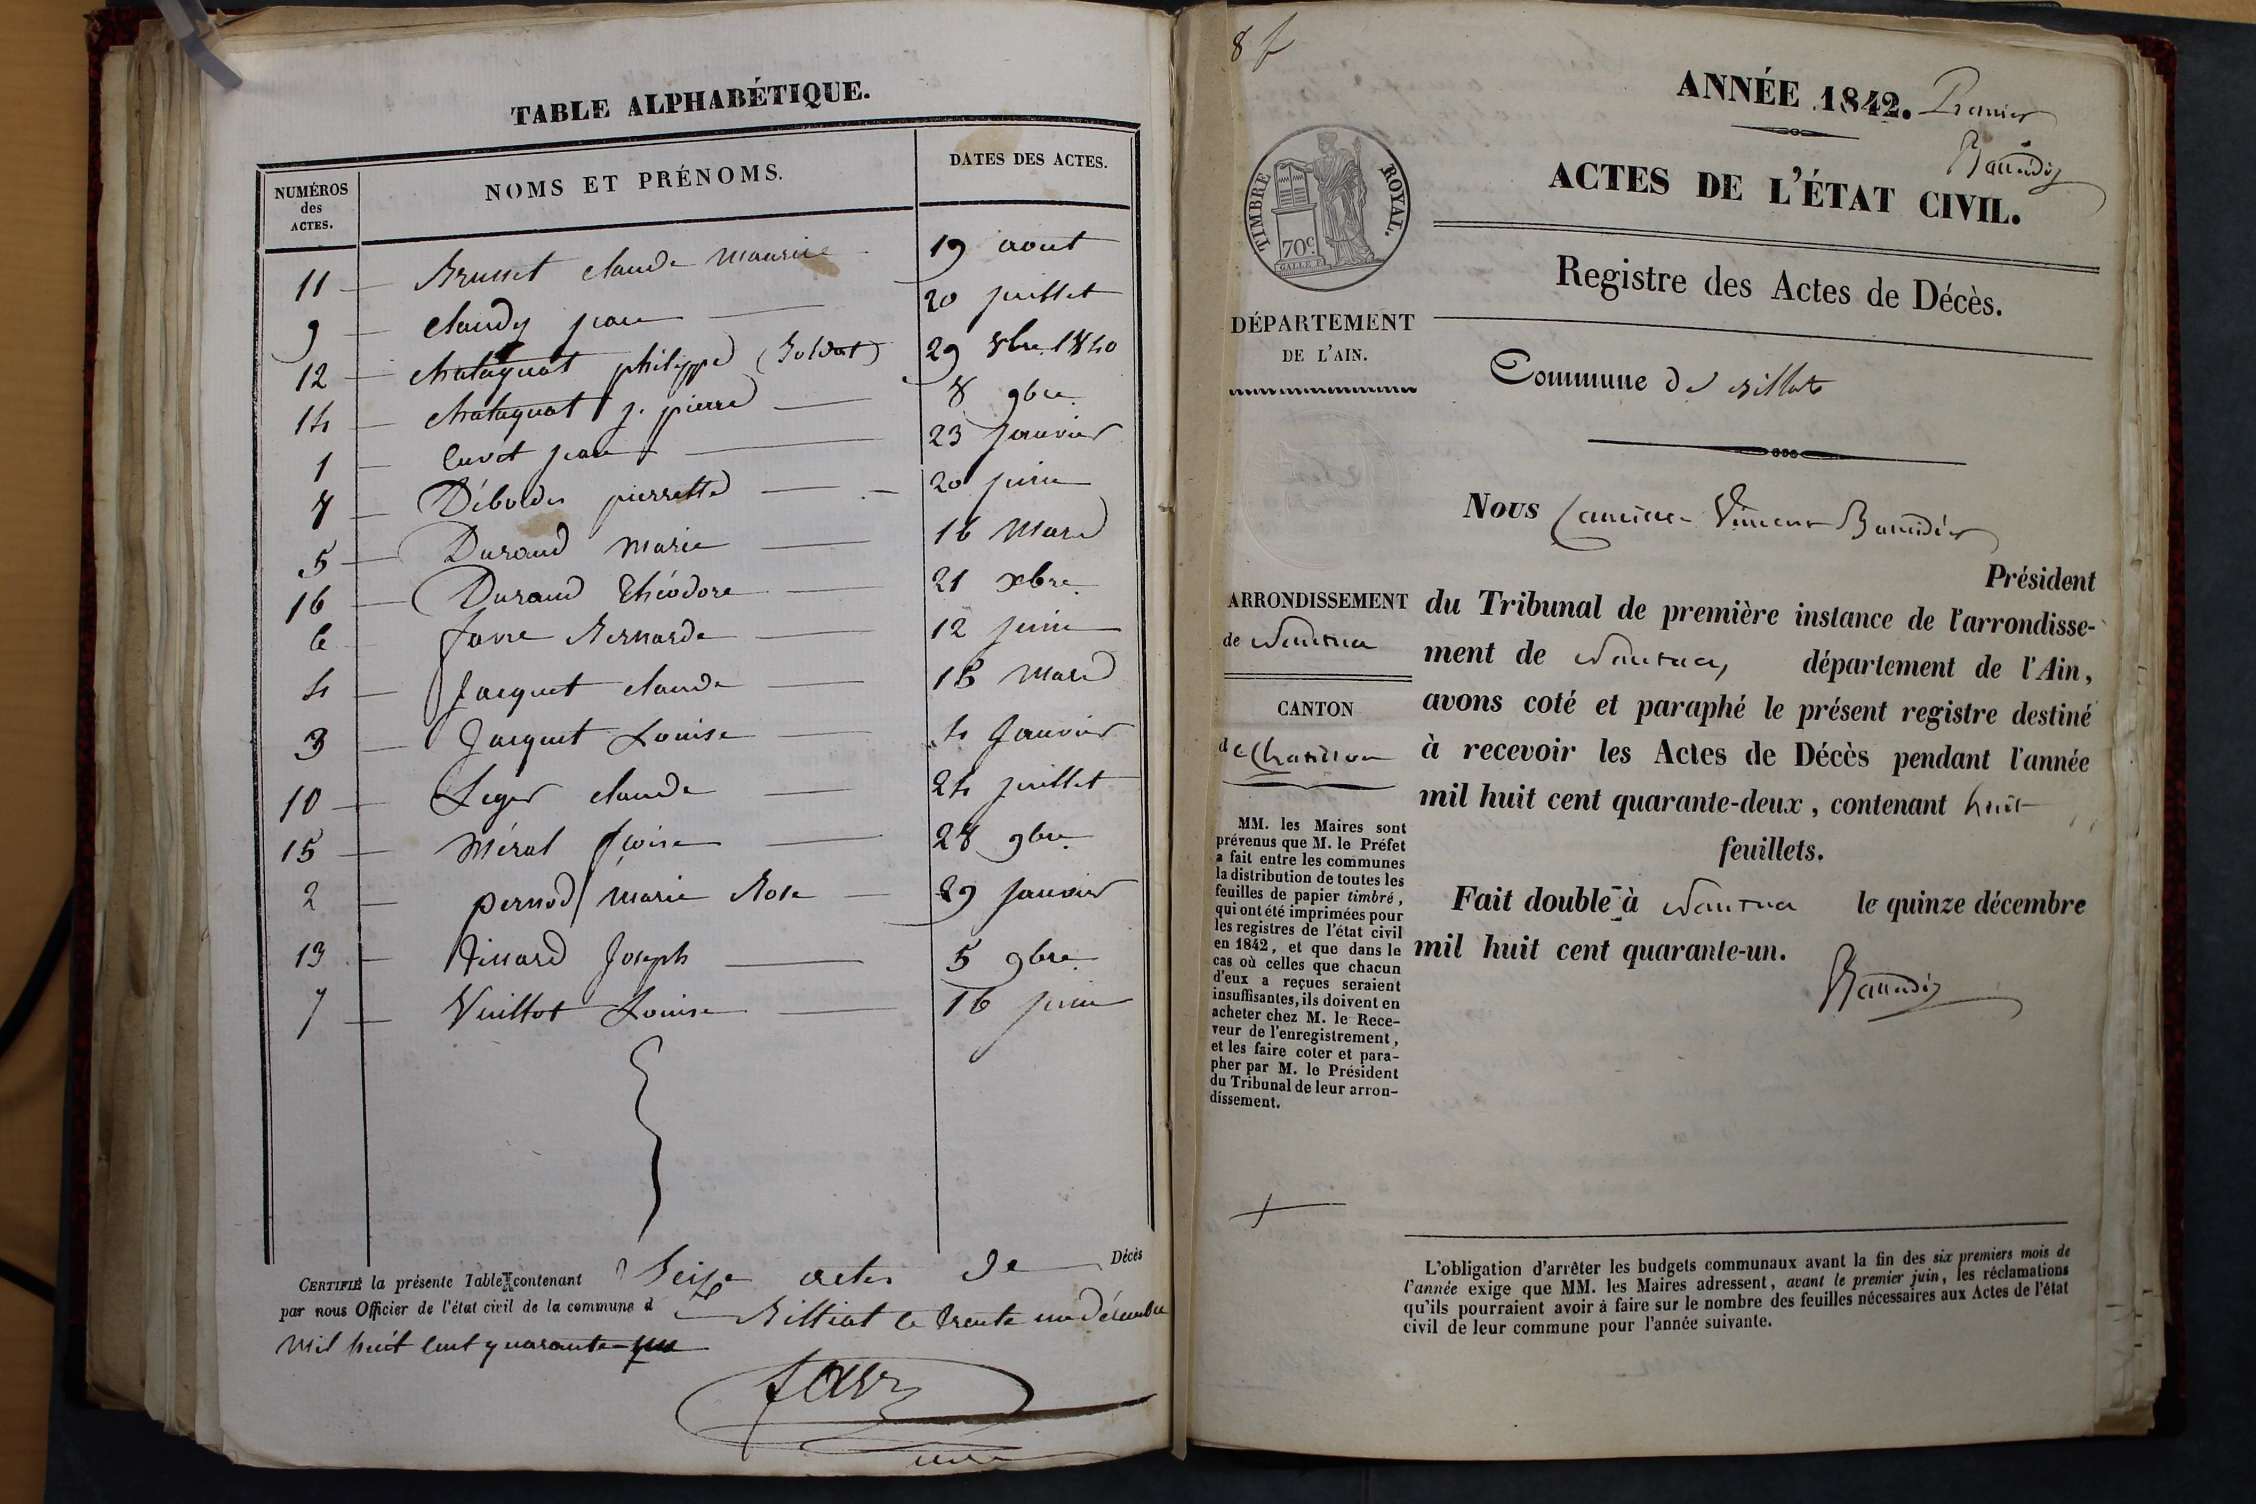 TABLE ALPHABÉTIQUE.
NUMÉROS des ACTES. NOMS ET PRÉNOMS. DATES DES ACTES.
11 Brunet claude Maurice 19 aout
9 claudy jean 20 juillet
12 chatagnat philippe (Soldat) 29 8bre 1840
14 chatagnat j. pierre 8 9bre
1 Cuvet jean 23 janvier
8 Débordes pierrette 20 juin
5 Durand Marie 16 Mars
16 Durand Théodore 21 xbre
6 favre Bernarde 12 juin
4 Jacquet claude 16 Mars
3 Jacquet Louise 4 janvier
10 Leger claude 24 juillet
15 Méral 28 9bre
2 pernod Marie Rose 29 janvier
13 Tissard Joseph 5 9bre
7 Vuillot Louise 16 juin
CERTIFIÉ la présente Table contenant Seize actes de Décès
par nous Officier de l'état civil de la commune d Billiat le trente un décembre
mil huit cent quarante un
favre
maire
8 f
ANNÉE 1842. Premier
Baudier
ACTES DE L'ÉTAT CIVIL.
Registre des Actes de Décès.
TIMBRE ROYAL.
70c
GALLE F.
DÉPARTEMENT
DE L'AIN.
Commune de Billiat
Nous Vincent Baudier
Président
ARRONDISSEMENT
de Nantua
CANTON
de Chatillon
du Tribunal de première instance de l'arrondisse-
ment de Nantua, département de l'Ain,
avons coté et paraphé le présent registre destiné
à recevoir les Actes de Décès pendant l'année
mil huit cent quarante-deux, contenant huit
feuillets.
Fait double à Nantua le quinze décembre
mil huit cent quarante-un.
Baudier
MM. les Maires sont
prévenus que M. le Préfet
a fait entre les communes
la distribution de toutes les
feuilles de papier timbré,
qui ont été imprimées pour
les registres de l'état civil
en 1842, et que dans le
cas où celles que chacun
d'eux a reçues seraient
insuffisantes, ils doivent en
acheter chez M. le Rece-
veur de l'enregistrement,
et les faire coter et para-
pher par M. le Président
du Tribunal de leur arron-
dissement.
L'obligation d'arrêter les budgets communaux avant la fin des six premiers mois de
l'année exige que MM. les Maires adressent, avant le premier juin, les réclamations
qu'ils pourraient avoir à faire sur le nombre des feuilles nécessaires aux Actes de l'état
civil de leur commune pour l'année suivante.